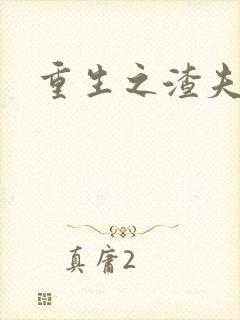 重生之渣夫
真庸2